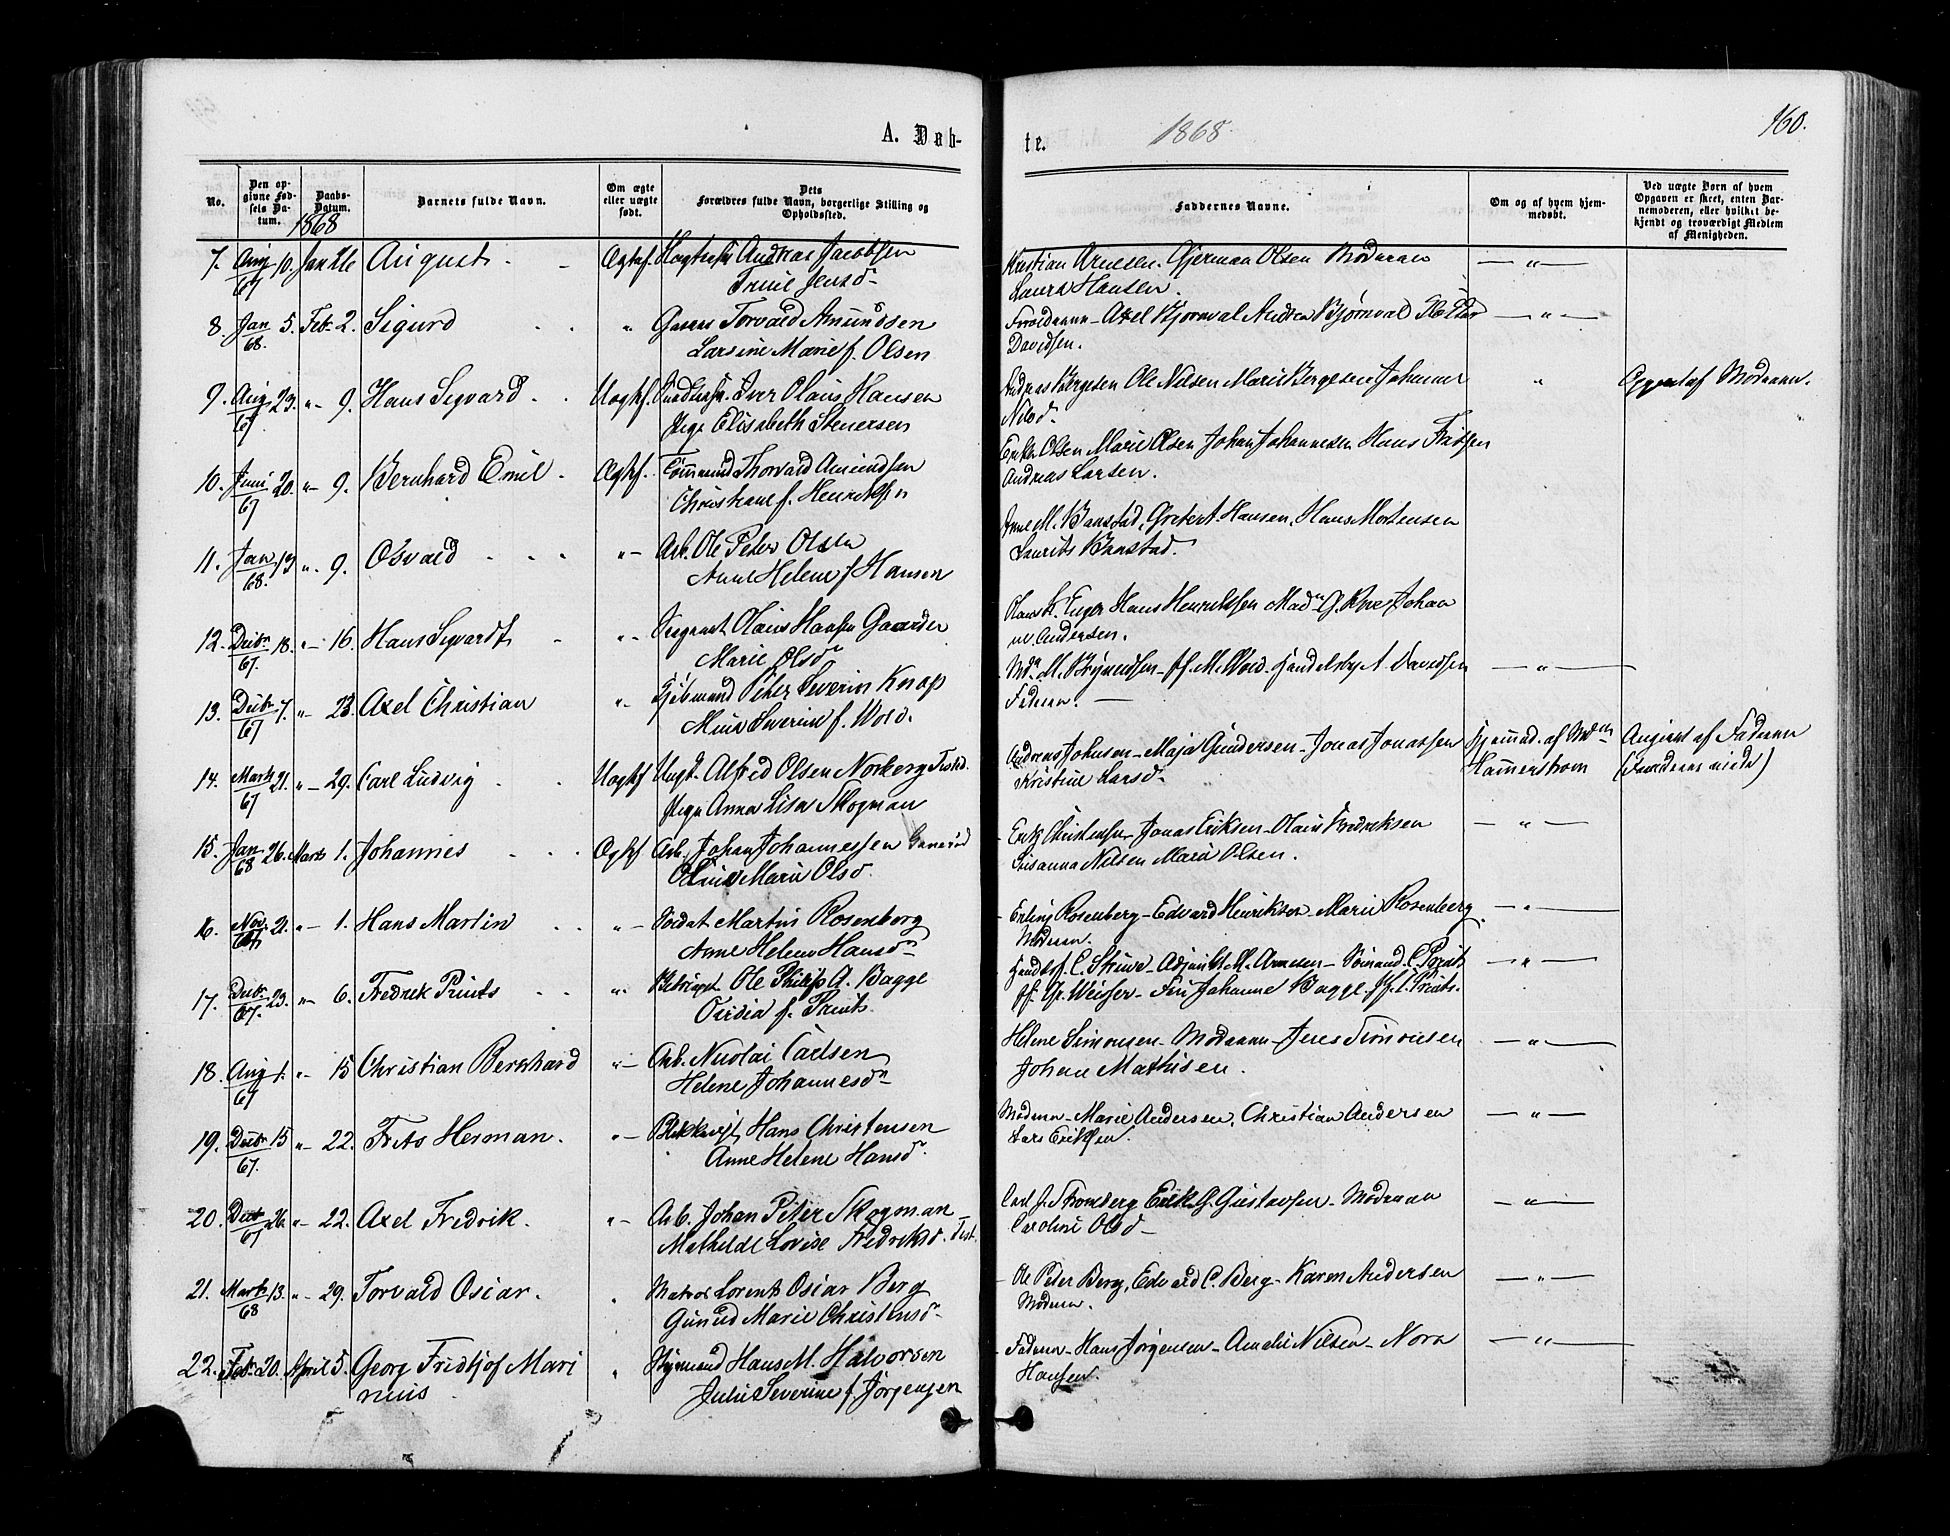 A. Døb-
te.
1868
160.
No.
Den op-
givne Fød-
sels Da-
tum.
Daabs-
Datum.
1868
Barnets fulde Navn.
Om ægte
eller uægte
født.
Dets
Forældres fulde Navn, borgerlige Stilling og
Opholdssted.
Faddernes Navne.
Om og af hvem hjem-
medøbt.
Ved uægte Børn af hvem
Opgaven er skeet, enten Bar-
nemoderen, eller hvilket be-
kjendt og troværdigt Medlem
af Menigheden.
7. Aug/67 10. Jan 26 August Ægtef. Andreas Jacobsen
Trine Jensd
Kristian Arnesen. Gjerman Olsen Moderen — " —
Laura Hansen.
8. Jan/68. 5. Feb. 2. Sigurd " Torvald Amundsen
Larsine Marie f. Olsen
Forældrene - Axel Bjørnval Andrea Bjørnval — " —
Davidsen.
9. Aug/67 23. "- 9. Hans Sigvard Uægtef. Iver Olaus Hansen
Pige Elisabeth Stenersen
Andreas Børgesen Ole Nilsen Marie Børgesen Johanne " Opgivet af Moderen.
Nilsd.
10. Juni/67 20. "- 9. Bernhard Emil Ægtef. Tømmermd Thorvald Amundsen
Christiane f. Henriksen
Erik Olsen Marie Olsen Johan Johannesen Hans
Andreas Larsen.
11. Jan/68. 13 ". 9. Osvald "- Arb. Ole Peter Olsen
Anne Helene f Hansen
Anne M. Banstad, Hansen, Hans Mortensen
Laurits Banstad.
12. Decbr/67. 18. "- 16. Hans Sigvardt "- Sergeant Olaus Hansen Gaarder
Marie Olsd
Hans Henriksen Johan
Andersen.
13. Decbr/67 7. "- 23. Axel Christian "- Peter Severin Knap
Severine f. Wold.
M. Brynildsen - M. Wold - Handelsb. A. Davidsen — " —
Faderen. —
14. Marts/67 21. "- 29. Carl Ludvig Uægtef Ungk. Alfred Olsen Norberg
Pige Anna Lisa Skogman
Andreas Johnsen - Maja Gundersen - Jonas Jonassen Hjemmed. af Mdm Angivet af Faderen
Kristine Larsd - Hammerstrøm
15. Jan/68 26. Marts 1. Johannes Ægtef Arb. Johan Johannessen
Oline Marie Olsd.
Erik Christensen - Jonas Eriksen - Olaus Fredriksen — " —
Susanna Nilsen Marie Olsen.
16. Nov/67 21. "- 1. Hans Martin "- Soldat Martin Rosenberg
Anne Helene Hansd
Erling Rosenberg - Edvard Henriksen - Marie Rosenberg — " —
Moderen.
17. Decbr/67. 23. "- 6. Fredrik Prints ". Ole Philip A. Bagge
f. Prints.
C. Struve - Adjunkt M. Arnesen - C. Prints — " —
Weiser - Johanne Bagge
18. Aug/67 1. "- 15 Christian Bernhard "- Arb. Nicolai Carlsen
Helene Johannesd
Helene Simonsen - Moderen - Jens Simonsen — " —
Johan Mathisen.
19. Decbr/67. 15 "- 22. Frits Herman. "- Hans Christensen
Anne Helene Hansd.
Moderen - Marie Andersen, Christian Andersen — " —
Lars Eriksen.
20. Decbr/67 26. "- 22. Axel Fredrik. "- Arb. Johan Peter Skogman
Mathilde Lovise Fredriksd.
Carl J. Stromberg Erik G. Gustavsen - Moderen — " —
Caroline Olsd -
21. Marts/68 13. "- 29. Torvald Oscar. " Matros Lorents Oscar Berg
Gunild Marie Christensd -
Ole Peter Berg, Edvard C. Berg - Karen Andersen — " —
Moderen.
22. Febr. 20. April 5. Georg Fridtjof Mari " Styrmand Hans M. Halvorsen
nius Julie Severine f. Jørgensen
Faderen - Hans Jørgensen - Amalie Nilsen - Nora — " —
Hansen.